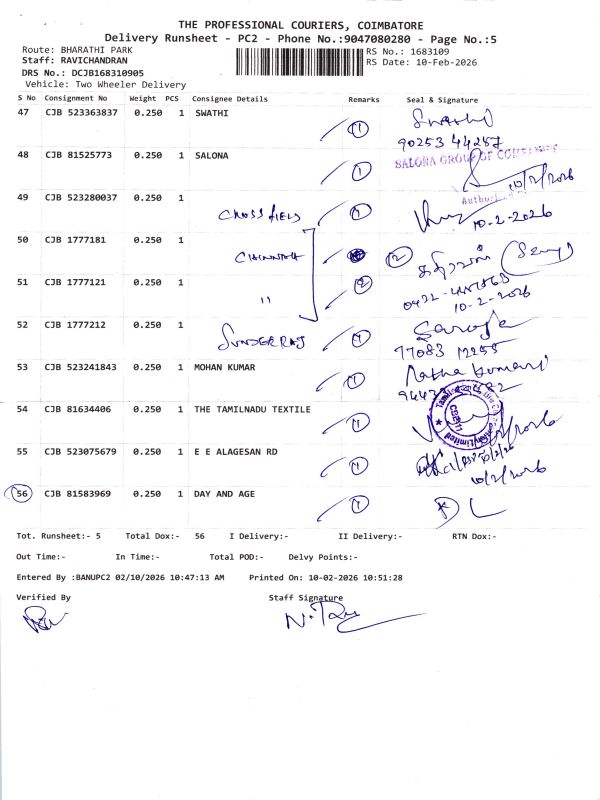 THE PROFESSIONAL COURIERS, COIMBATORE
Delivery Runsheet - PC2 - Phone No.:9047080280 - Page No.:5
Route: BHARATHI PARK
RS No.: 1683109
Staff: RAVICHANDRAN
RS Date: 10-Feb-2026
DRS No.: DCJB168310905
Vehicle: Two Wheeler Delivery
S No Consignment No Weight PCS Consignee Details Remarks Seal & Signature
47 CJB 523363837 0.250 1 SWATHI 1 Swathi
90253 44257
48 CJB 81525773 0.250 1 SALONA 1 SALONA GROUP OF
10/2/2026
49 CJB 523280037 0.250 1 CROSS FIELD 1
10-2-2026
50 CJB 1777181 0.250 1 2
51 CJB 1777121 0.250 1 " 2
10-2-2026
52 CJB 1777212 0.250 1 SUNDERRAJ 1 Saroja
77083 12255
53 CJB 523241843 0.250 1 MOHAN KUMAR 1 Kumari
54 CJB 81634406 0.250 1 THE TAMILNADU TEXTILE 1
55 CJB 523075679 0.250 1 E E ALAGESAN RD 1
10/2/2026
56 CJB 81583969 0.250 1 DAY AND AGE 1
Tot. Runsheet:- 5 Total Dox:- 56 I Delivery:- II Delivery:- RTN Dox:-
Out Time:- In Time:- Total POD:- Delvy Points:-
Entered By :BANUPC2 02/10/2026 10:47:13 AM Printed On: 10-02-2026 10:51:28
Verified By Staff Signature